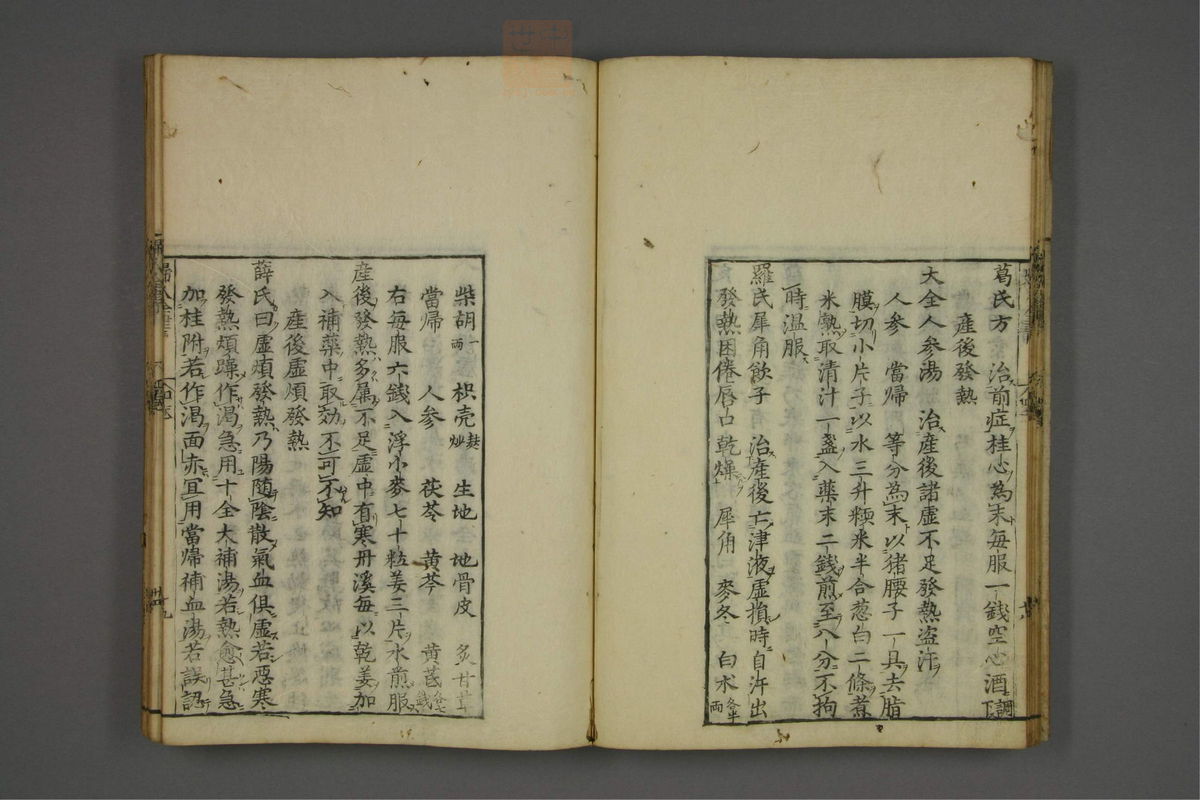 葛氏方 治前症桂心為末毎服一錢空心酒調下
産後發熱
大全人参湯 治産後諸虚不足發熱盗汗
人参 當帰 等分為末以猪腰子一具去脂
膜切小片子以水三升糯米半合葱白二條煮
米熟取清汁一盞入薬末二錢煎至八分不拘
時温服
羅氏犀角飲子 治産後亡津液虚損時自汗出
發熱困倦唇口乾燥 犀角 麥冬 白朮各半両
柴胡一両 枳壳麩炒 生地 地骨皮 炙甘草
當帰 人参 茯苓 黄芩 黄芪各七錢
右毎服六錢入浮小麥七十粒姜三片水煎服
産後發熱多属不足虚中有寒丹溪毎以乾姜加
入補薬中取効不可不知
産後虚煩發熱
薛氏曰虚煩發熱乃陽随陰散氣血倶虚若悪寒
發熱煩躁作渇急用十全大補湯若熱愈甚急
加桂附若作渇面赤冝用當帰補血湯若誤認